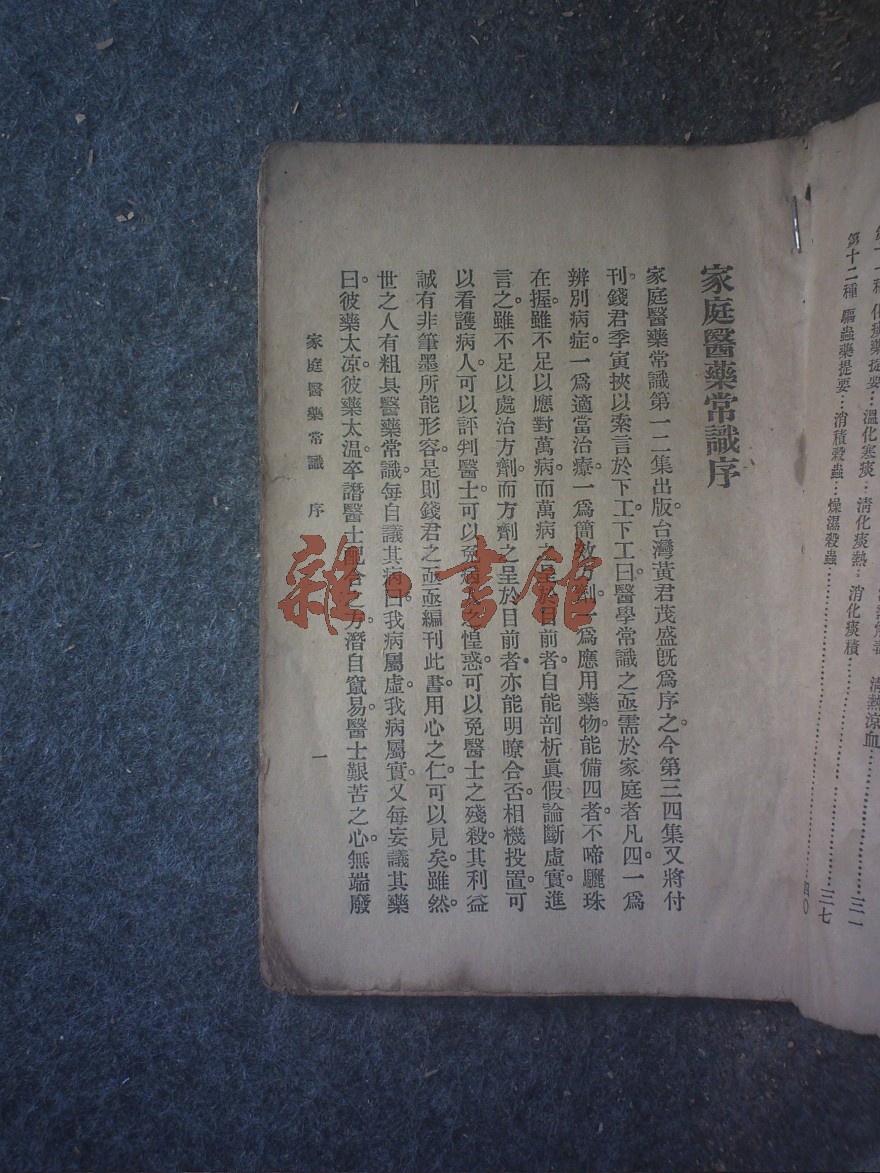 清熱涼血
化痰藥提要…溫化寒痰…清化痰熱…消化痰積……三一
第十二種 驅蟲藥提要…消積殺蟲…燥濕殺蟲……三七
四〇
家庭醫藥常識序
家庭醫藥常識第一二集出版。台灣黃君茂盛旣爲序之。今第三四集又將付
刊。錢君季寅挾以索言於下工。下工曰。醫學常識之亟需於家庭者凡四。一爲
辨別病症。一爲適當治療。一爲簡效方劑。一爲應用藥物。能備四者。不啻驪珠
在握。雖不足以應對萬病。而萬病之呈於目前者。自能剖析眞假。論斷虛實。進
言之。雖不足以處治方劑。而方劑之呈於目前者。亦能明瞭合否。相機投置。可
以看護病人。可以評判醫士。可以免病人之惶惑。可以免醫士之殘殺。其利益
誠有非筆墨所能形容。是則錢君之亟亟編刊此書。用心之仁。可以見矣。雖然。
世之人有粗具醫藥常識。每自議其病曰。我病屬虛。我病屬實。又每妄議其藥
曰。彼藥太凉。彼藥太温。卒譖醫士配合之方。潛自竄易。醫士艱苦之心。無端廢
家庭醫藥常識 序
一
雜·書館